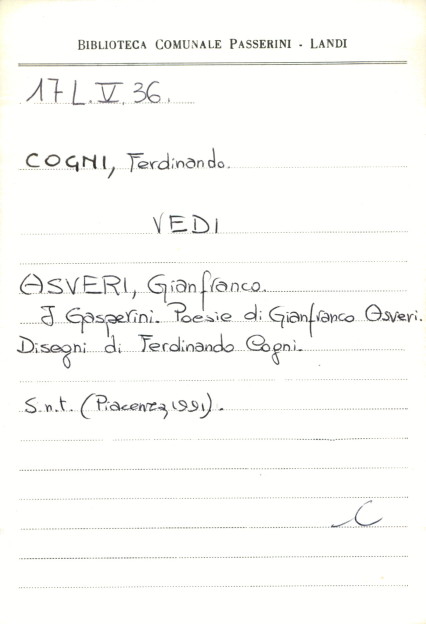 BIBLIOTECA COMUNALE PASSERINI - LANDI
17 L. V. 36.
COGNI, Ferdinando.
VEDI
ASVERI, Gianfranco.
I Gasperini. Poesie di Gianfranco Asveri.
Disegni di Ferdinando Cogni.
S.n.t. (Piacenza, 1991).
C